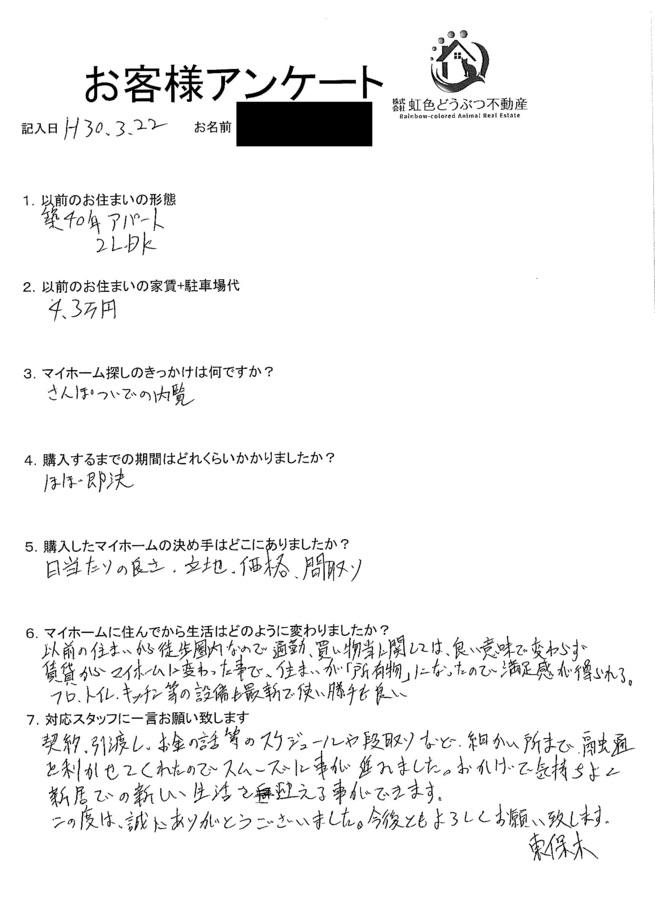 お客様アンケート
株式会社 虹色どうぶつ不動産
Rainbow-colored Animal Real Estate
記入日 H30.3.22 お名前
1. 以前のお住まいの形態
築40年アパート
2LDK
2. 以前のお住まいの家賃+駐車場代
4.3万円
3. マイホーム探しのきっかけは何ですか？
さんぽついでの内覧
4. 購入するまでの期間はどれくらいかかりましたか？
ほぼ即決
5. 購入したマイホームの決め手はどこにありましたか？
日当たりの良さ、立地、価格、間取り
6. マイホームに住んでから生活はどのように変わりましたか？
以前の住まいから徒歩圏内なので通勤、買い物等に関しては、良い意味で変わらず
賃貸からマイホームに変わった事で、住まいが「所有物」になったので満足感が得られる。
フロ、トイレ、キッチン等の設備も最新で使い勝手も良い
7. 対応スタッフに一言お願い致します
契約、引渡し、お金の話等のスケジュールや段取りなど、細かい所まで、融通
を利かせてくれたのでスムーズに事が進れました。おかげで気持ちよく
新居での新しい生活を迎える事ができます。
この度は、誠にありがとうございました。今後ともよろしくお願い致します。
東保木